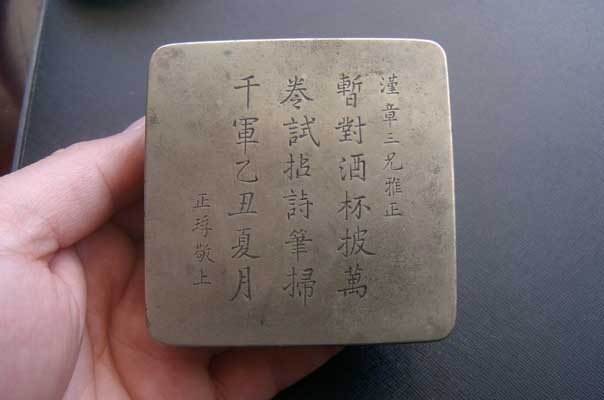 瑾章三兄雅正
暫對酒杯披萬
卷試拈詩筆掃
千軍乙丑夏月
正琈敬上